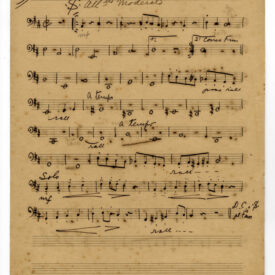 All.º Moderato
mf
D.C. con Fin
poco rall
rall
a tempo
a tempo
rall
rall - - -
Solo
mf
rall - - -
D.C. 𝄋
al Fine